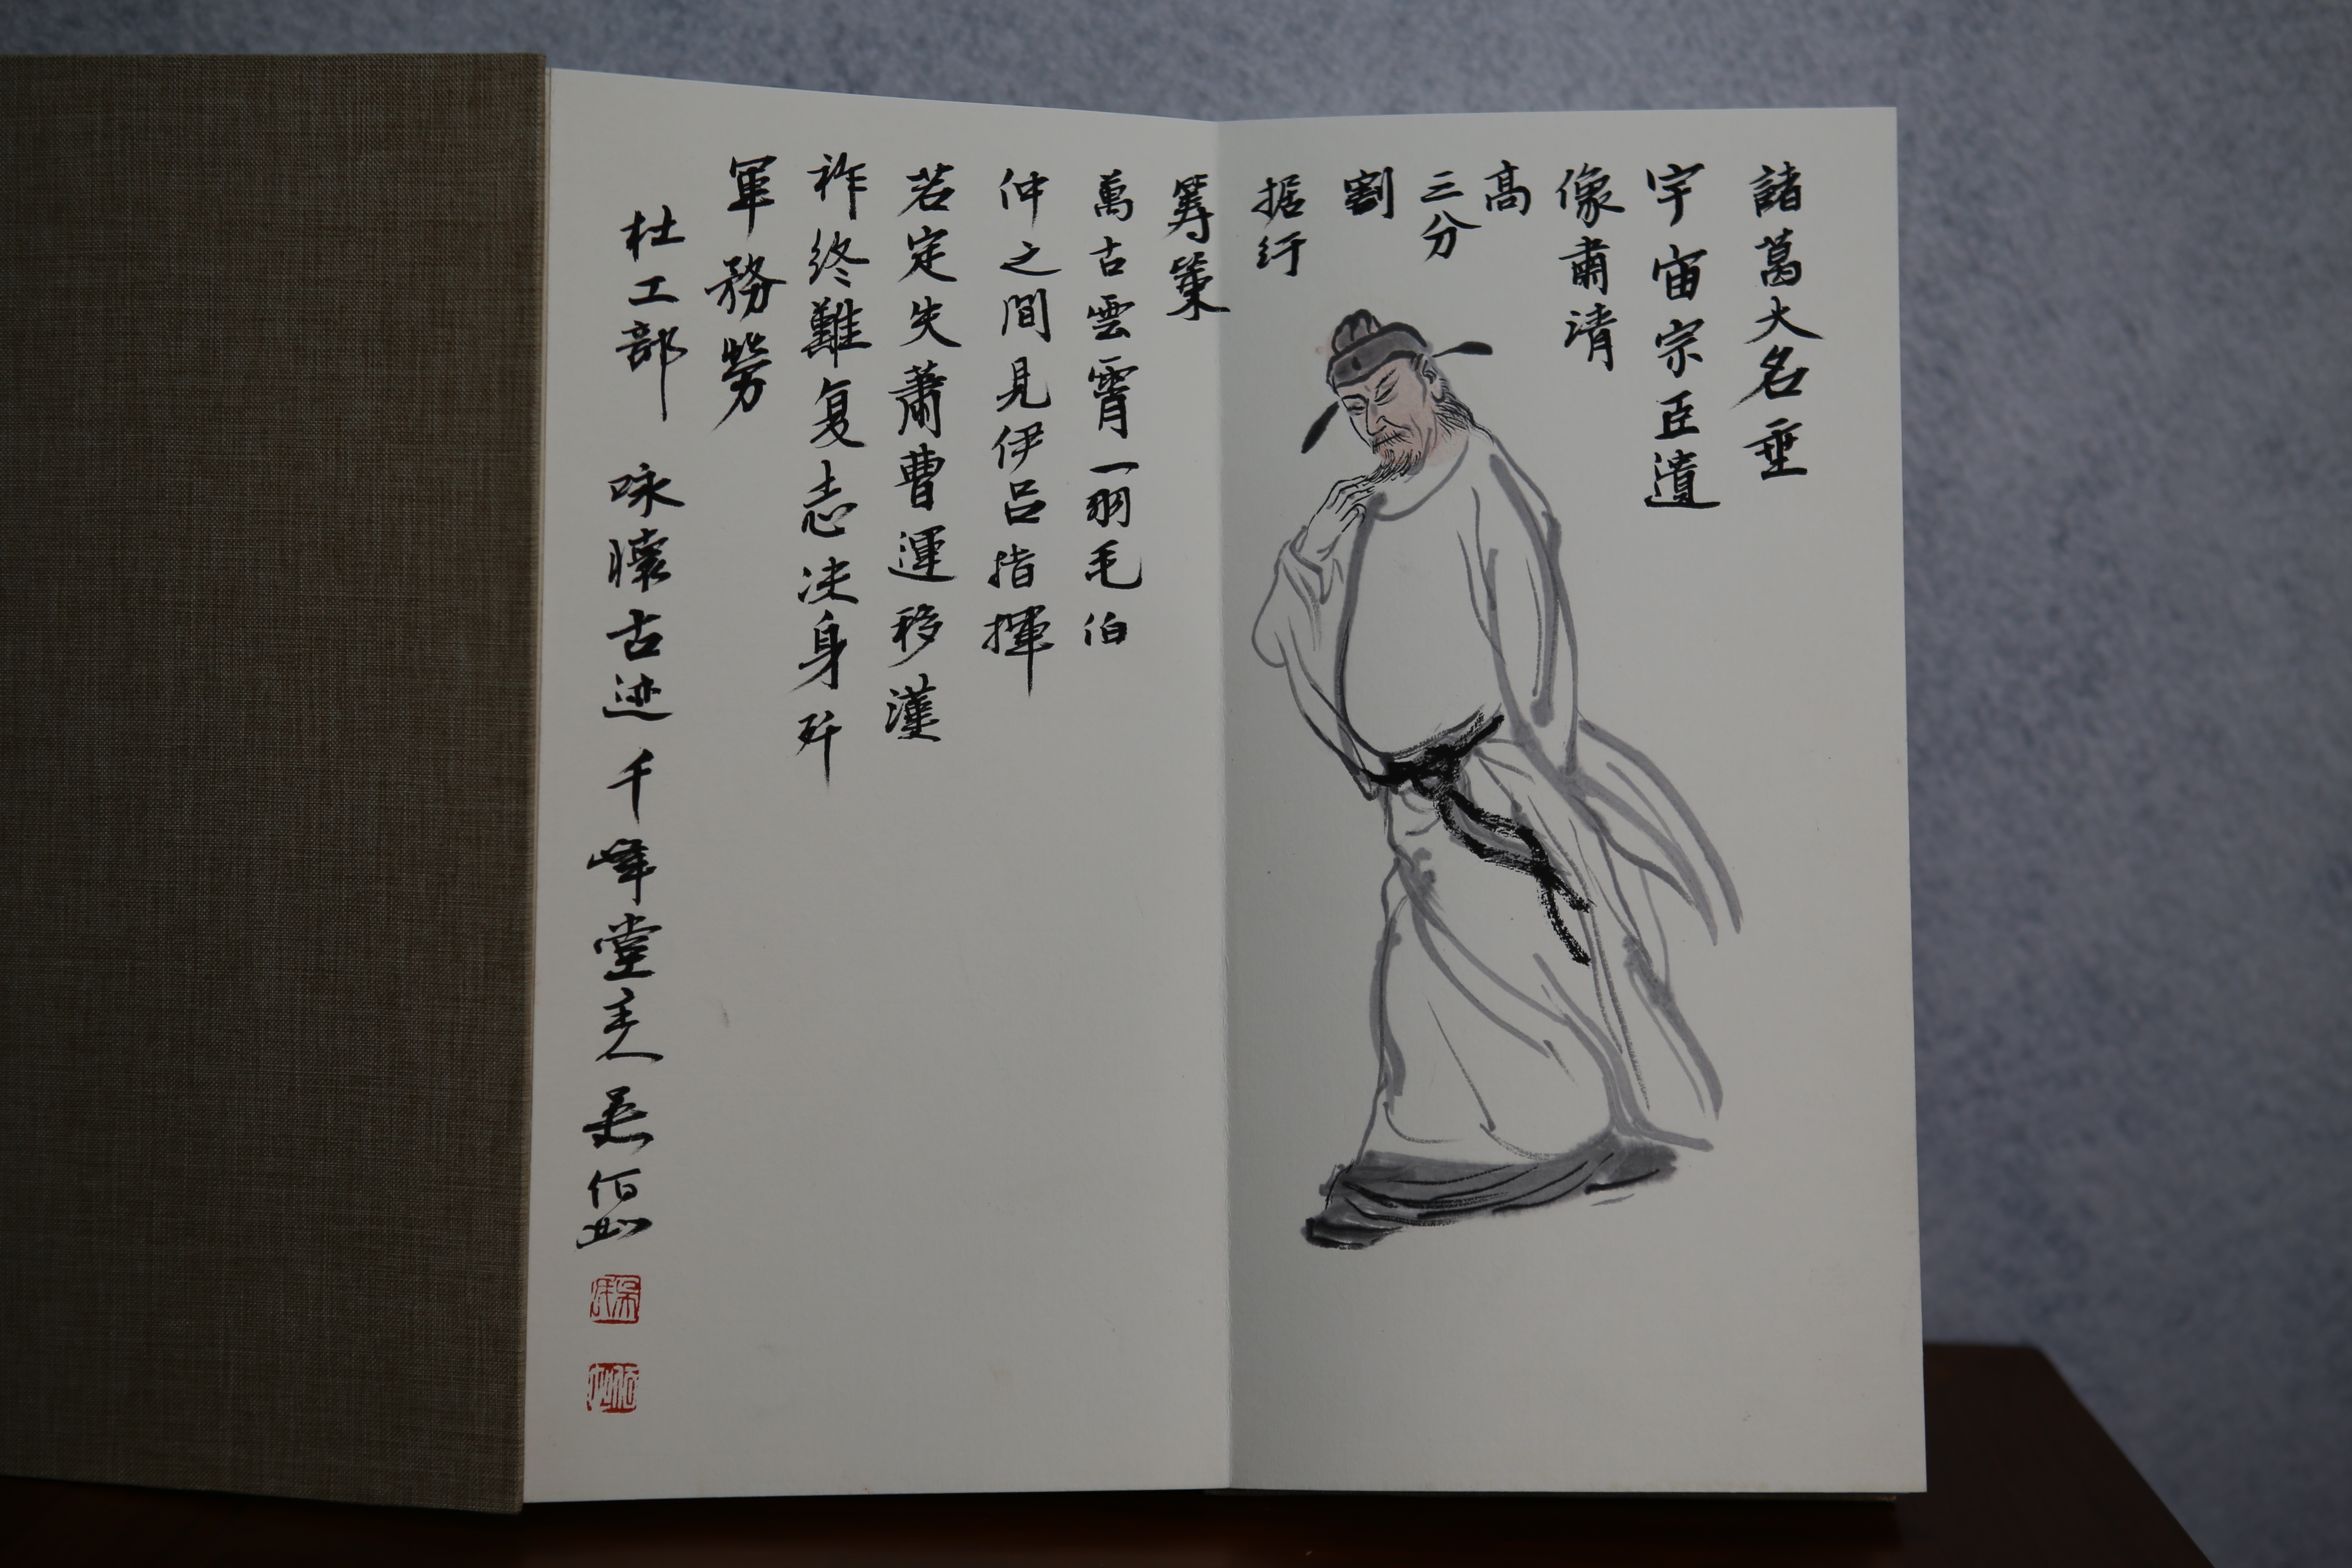 諸葛大名垂
宇宙宗臣遺
像肅清
高
三分
割
据紆
籌策
萬古雲霄一羽毛伯
仲之間見伊呂指揮
若定失蕭曹運移漢
祚終難复志决身歼
軍務勞
杜工部 咏懷古迹 千峰堂主人